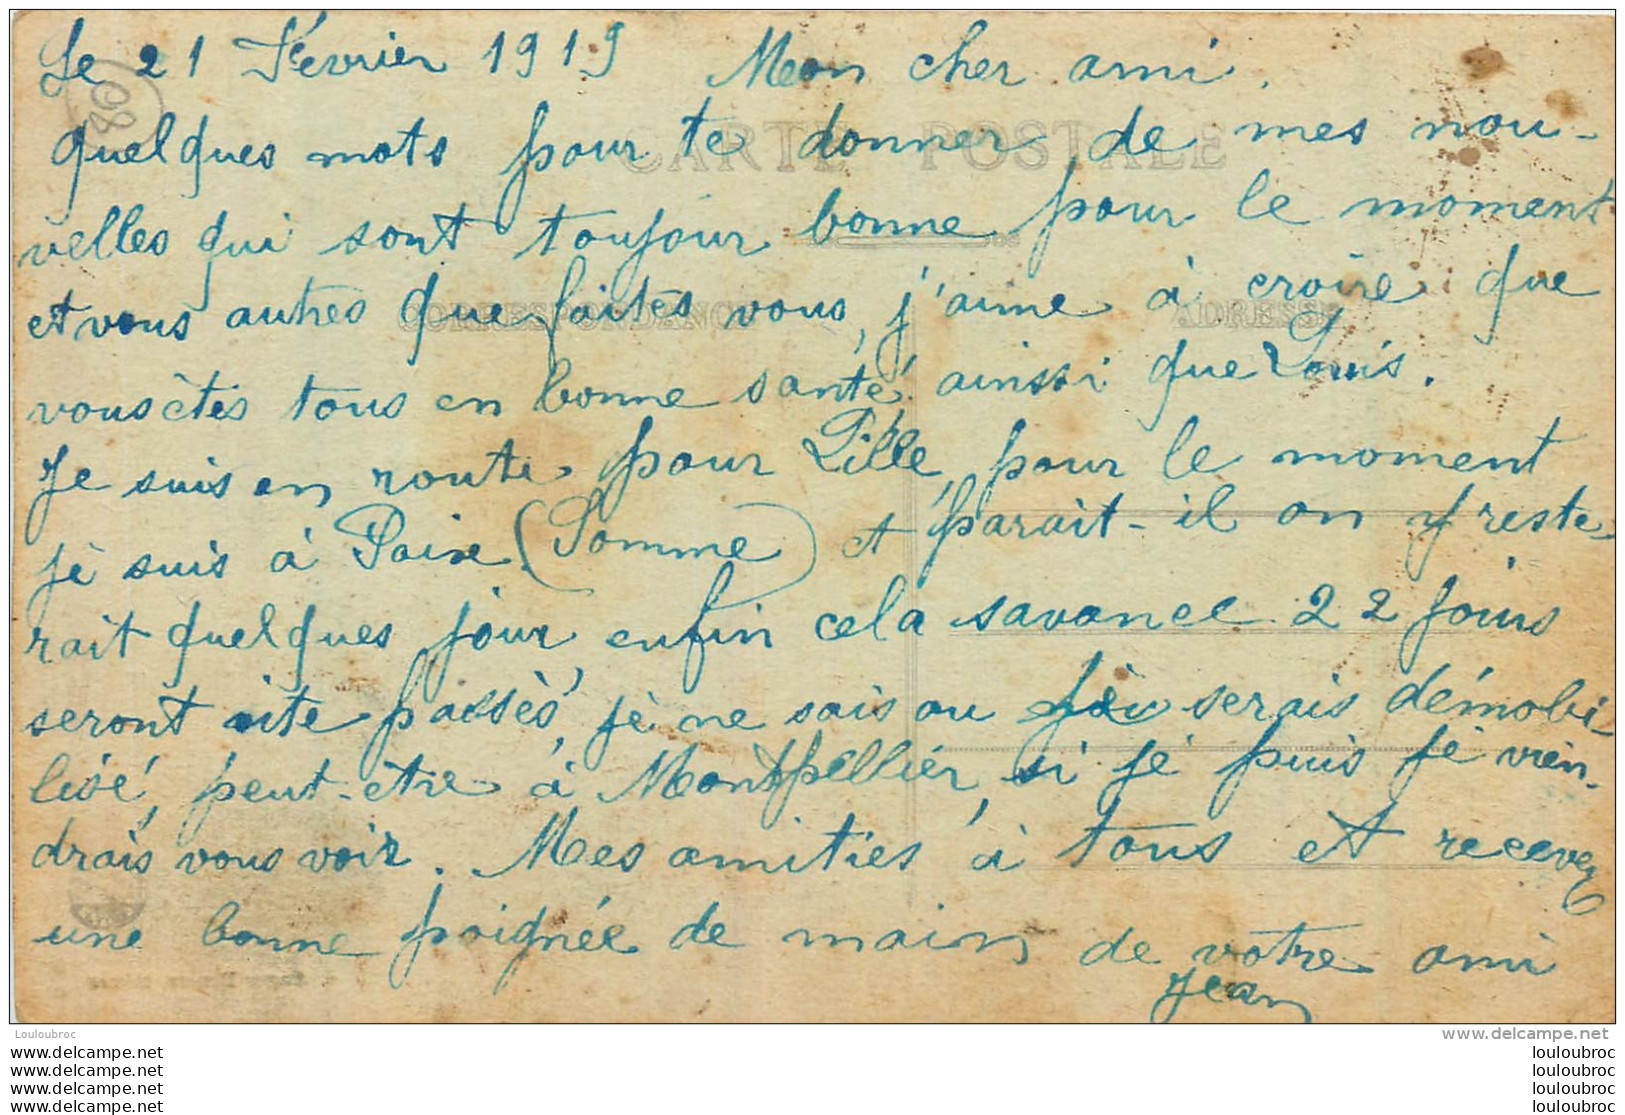 Le 21 Février 1919 Mon cher ami.
quelques mots pour te donner de mes nou-
velles qui sont toujour bonne pour le moment
et vous autres que faites vous, j'aime à croire que
vous êtes tous en bonne santé ainsi que Louis.
Je suis en route pour Lille, pour le moment
je suis à Poix (Somme) et parait-il on y reste
rait quelques jour enfin cela savance 22 jours
seront vite passès, jè ne sais ou je serais démobi
lisé, peut-etre à Montpellier, si je puis je vien-
drais vous voir. Mes amitiés à tous et recevez
une bonne poignée de main de votre ami
Jean
CARTE POSTALE
CORRESPONDANCE
ADRESSE
80
Louloubroc
www.delcampe.net
www.delcampe.net
www.delcampe.net
www.delcampe.net
www.delcampe.net
louloubroc
louloubroc
louloubroc
louloubroc